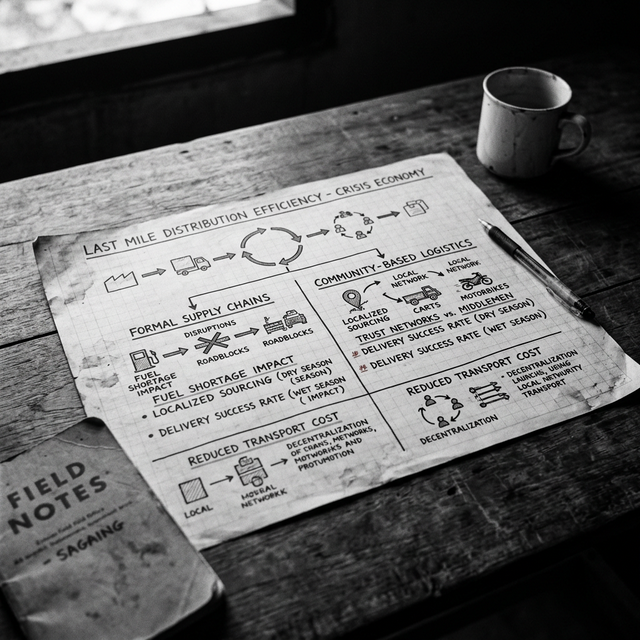 LAST MILE DISTRIBUTION EFFICIENCY - CRISIS ECONOMY
FORMAL SUPPLY CHAINS
DISRUPTIONS
FUEL
SHORTAGE
IMPACT
ROADBLOCKS
ROADBLOCKS
FUEL SHORTAGE IMPACT
• LOCALIZED SOURCING (DRY SEASON
(SEASON)
• DELIVERY SUCCESS RATE (WET SEASON
(IMPACT)
REDUCED TRANSPORT COST
LOCAL
NETWORKK
DECENTRALIZATION
AND
COMMUNITY-BASED LOGISTICS
LOCAL
NETWORK
LOCAL
NETWORK
LOCALIZED
SOURCING
CARTS
MOTORBIKES
TRUST NETWORKS vs. MIDDLEMEN
DELIVERY SUCCESS RATE (DRY SEASON)
DELIVERY SUCCESS RATE (WET SEASON)
REDUCED TRANSPORT COST
DECENTRALIZATION
- DECENTRALIZATION
LOCAL
TRANSPORT
FIELD
NOTES
- SAGAING